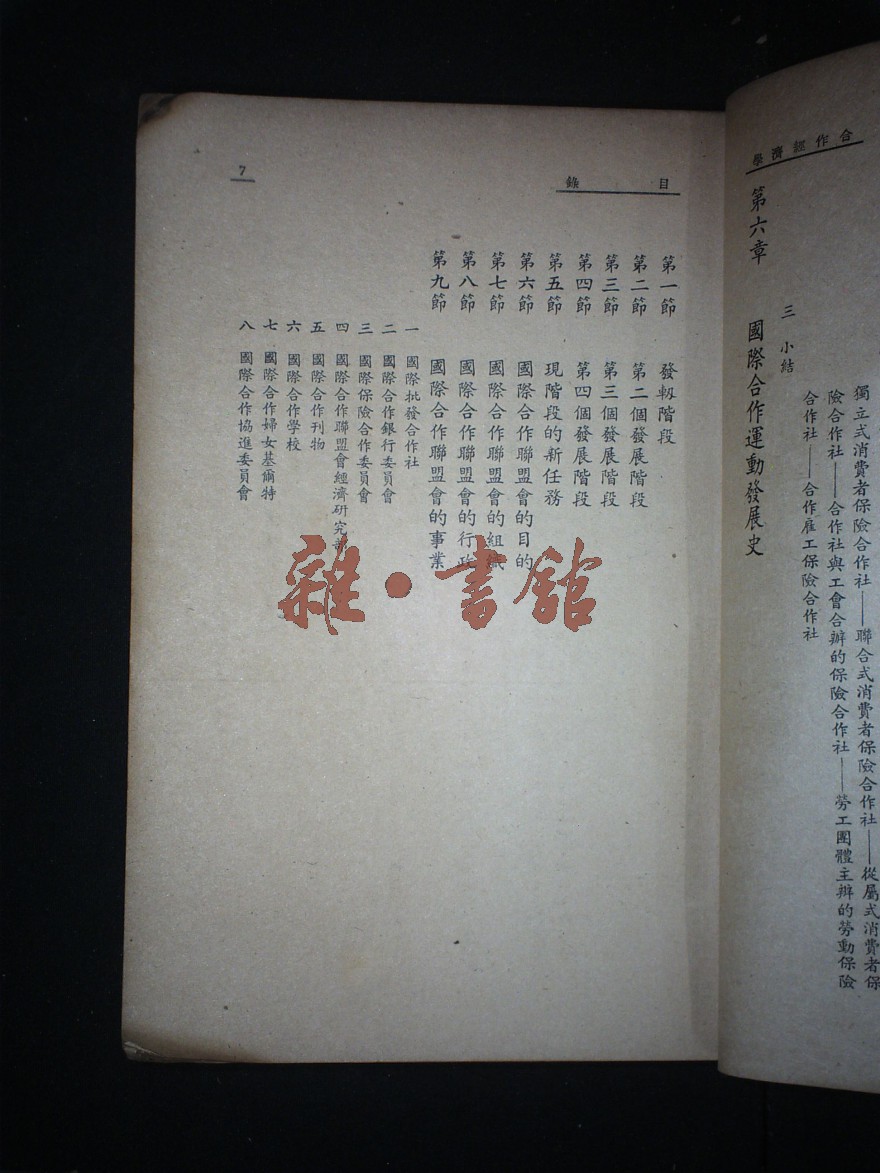 合作經濟學
獨立式消費者保險合作社——聯合式消費者保險合作社——從屬式消費者保
險合作社——合作社與工會合辦的保險合作社——勞工團體主辦的勞動保險
合作社——合作雇工保險合作社
三 小結
第六章 國際合作運動發展史
目錄
7
第一節 發軔階段
第二節 第二個發展階段
第三節 第三個發展階段
第四節 第四個發展階段
第五節 現階段的新任務
第六節 國際合作聯盟會的目的
第七節 國際合作聯盟會的組織
第八節 國際合作聯盟會的行政
第九節 國際合作聯盟會的事業
一 國際批發合作社
二 國際合作銀行委員會
三 國際保險合作委員會
四 國際合作聯盟會經濟研究部
五 國際合作刊物
六 國際合作學校
七 國際合作婦女基爾特
八 國際合作協進委員會
雜·書館